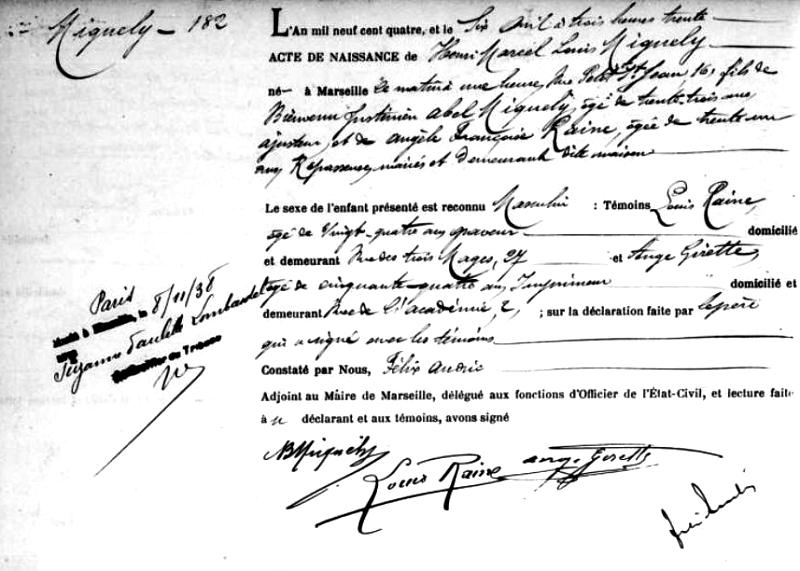 Miquely — 182
L'An mil neuf cent quatre, et le Six avril à trois heures trente
ACTE DE NAISSANCE de Henri Marcel Louis Miquely
né — à Marseille ce matin à une heure, Rue Petit St Jean 16, fils de
Bienvenu Justinien Abel Miquely, âgé de trente-trois ans
ajusteur, et de Angèle Françoise Raine, âgée de trente-un
ans, Repasseuse, mariés et demeurant dite maison
Le sexe de l'enfant présenté est reconnu Masculin : Témoins Louis Raine,
âgé de Vingt-quatre ans graveur domicilié
et demeurant Rue des trois Mages, 27 et Ange Girette,
âgé de cinquante-quatre ans, Imprimeur domicilié et
demeurant Rue de l'académie, 2, ; sur la déclaration faite par le père
qui a signé avec les témoins
Constaté par Nous, Félix Audric
Adjoint au Maire de Marseille, délégué aux fonctions d'Officier de l'État-Civil, et lecture faite
à u déclarant et aux témoins, avons signé
Paris
le 8/11/38
Suzanne Paulette Lombardet
Louis Raine ange Girette